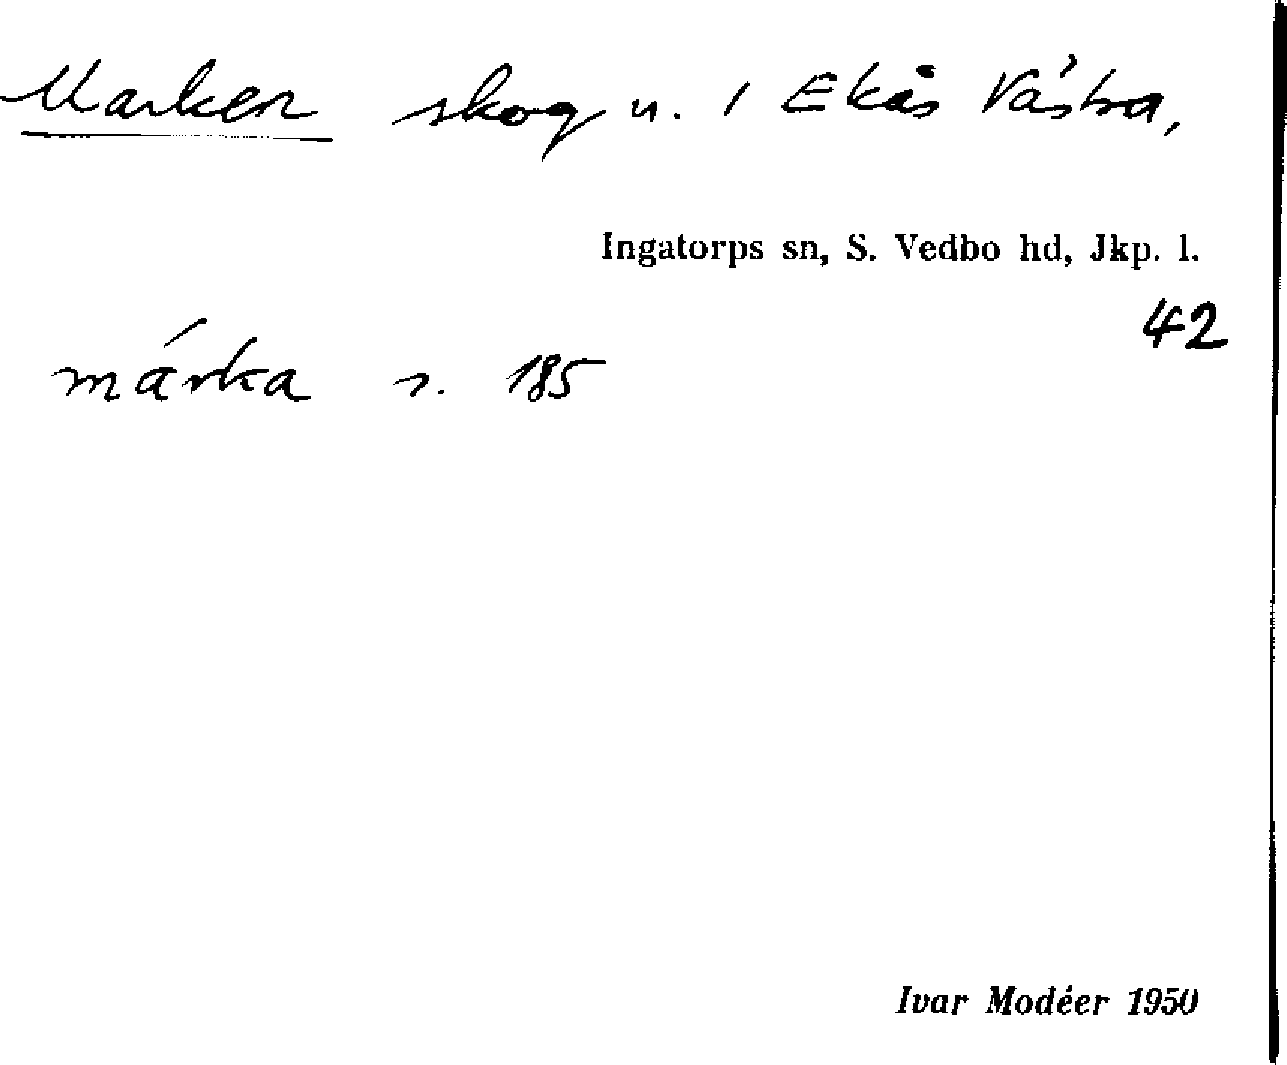 Marken skog n. i Ekås Västra,
Ingatorps sn, S. Vedbo hd, Jkp. l.
42
márka s. 185
Ivar Modéer 1950